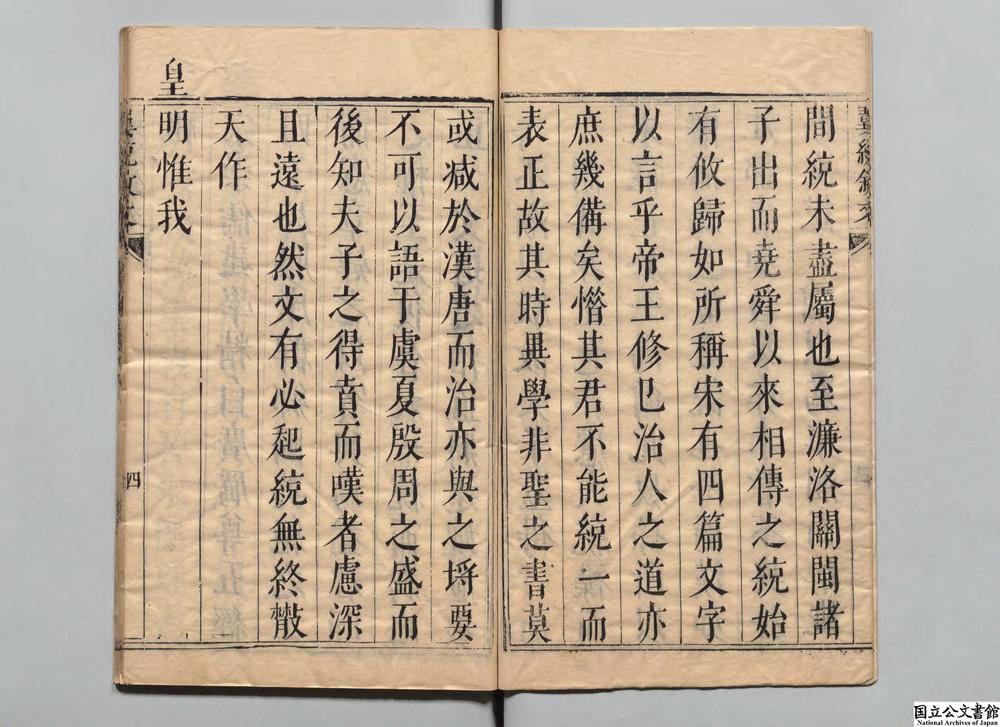 間統未盡屬也至濂洛關閩諸
子出而堯舜以來相傳之統始
有攸歸如所稱宋有四篇文字
以言乎帝王修己治人之道亦
庶幾備矣惜其君不能統一而
表正故其時異學非聖之書莫
或減於漢唐而治亦與之埒要
不可以語于虞夏殷周之盛而
後知夫子之得賁而嘆者慮深
且遠也然文有必起統無終斁
天作
皇
明惟我
四
国立公文書館
National Archives of Japan